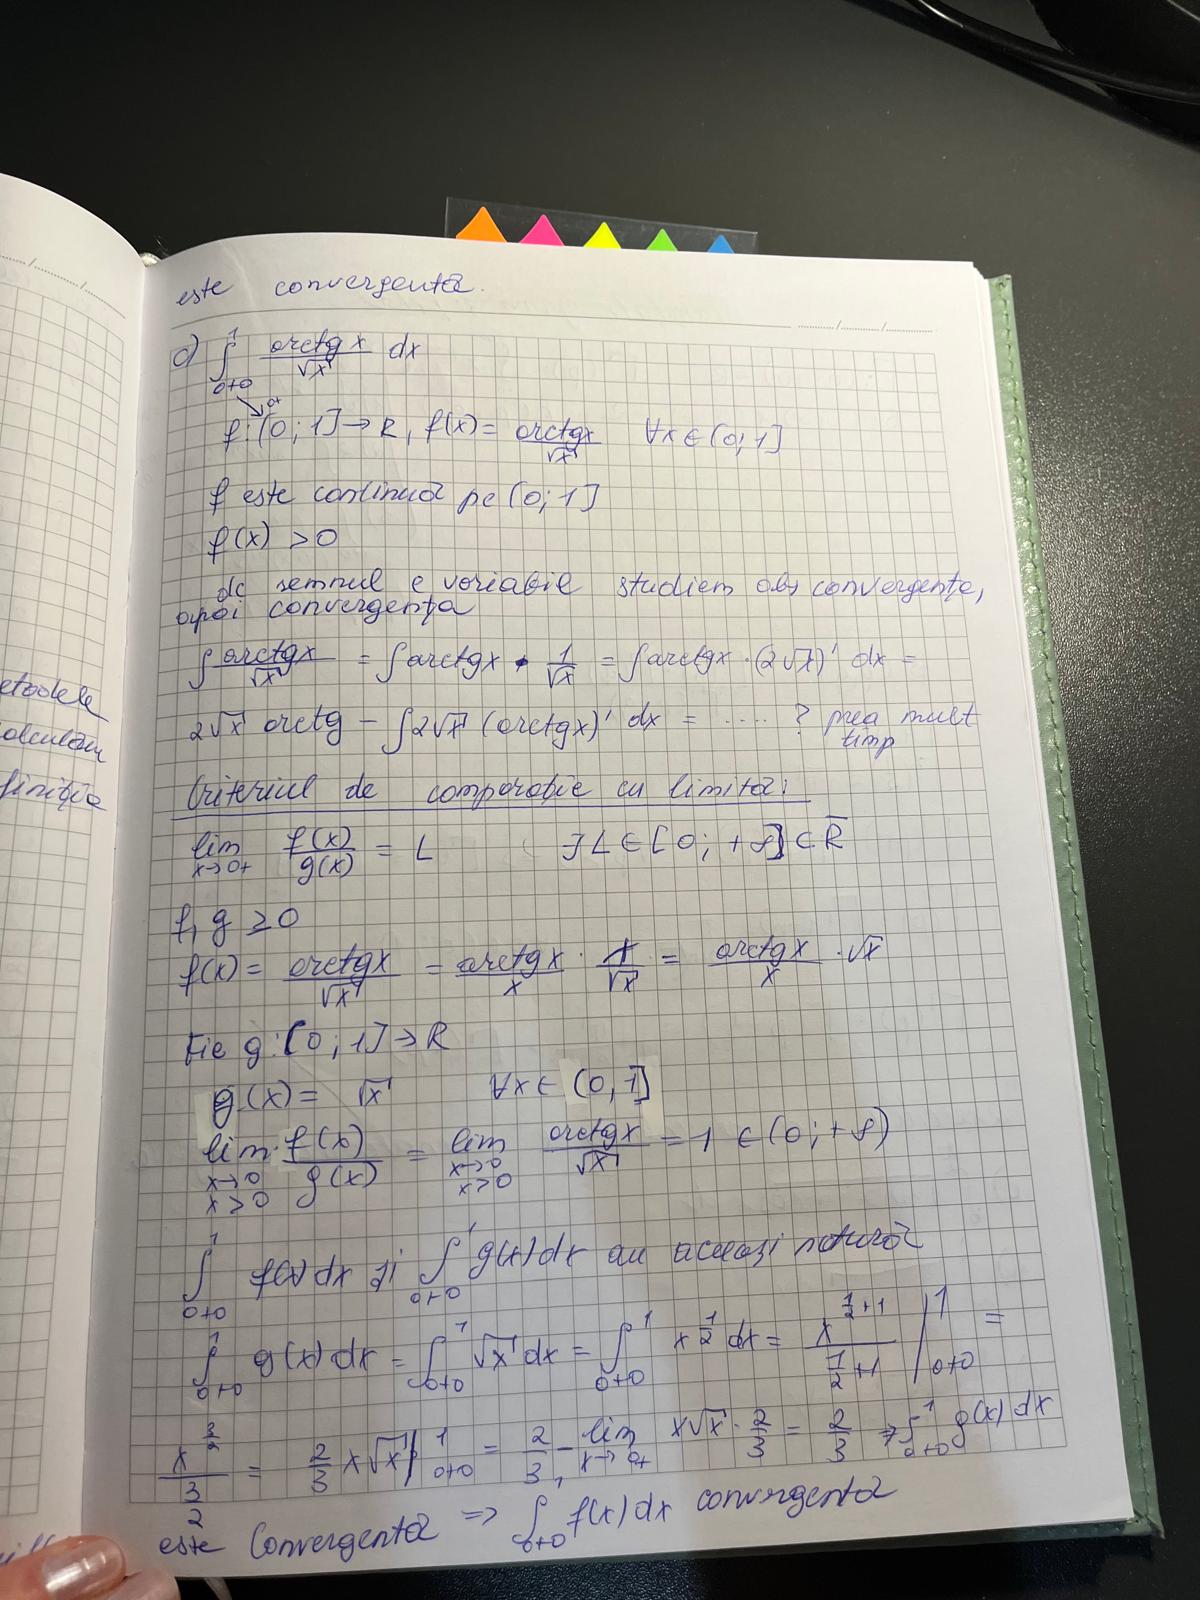 este convergentă.
c) ∫_{0+0}^{1} arctg x / √x dx
0+
f: (0; 1] → R, f(x) = arctgx / √x ∀x ∈ (0; 1]
f este continuă pe (0; 1]
f(x) > 0
dc semnul e variabil studiem abs convergența,
apoi convergența
∫ arctgx / √x = ∫ arctgx · 1/√x = ∫ arctgx · (2√x)' dx =
2√x arctg - ∫ 2√x (arctgx)' dx = ..... ? prea mult
timp
Criteriul de comparație cu limită:
lim_{x→0+} f(x)/g(x) = L ∃ L ∈ [0; +∞] ⊂ R̄
f, g ≥ 0
f(x) = arctgx / √x = arctgx / x · 1/√x = arctgx / x · √x
Fie g: (0; 1] → R
g(x) = √x ∀x ∈ (0, 1]
lim_{x→0, x>0} f(x)/g(x) = lim_{x→0, x>0} arctgx / √x = 1 ∈ (0; +∞)
∫_{0+0}^{1} f(x) dx și ∫_{0+0}^{1} g(x) dx au aceeași natură
∫_{0+0}^{1} g(x) dx = ∫_{0+0}^{1} √x dx = ∫_{0+0}^{1} x^{1/2} dx = x^{1/2+1} / (1/2+1) |_{0+0}^{1} =
x^{3/2} / (3/2) = 2/3 x√x |_{0+0}^{1} = 2/3 - lim_{x→0+} x√x · 2/3 = 2/3 ⇒ ∫_{0+0}^{1} g(x) dx
este convergentă => ∫_{0+0} f(x) dx convergentă
etodele
alculăm
finiția